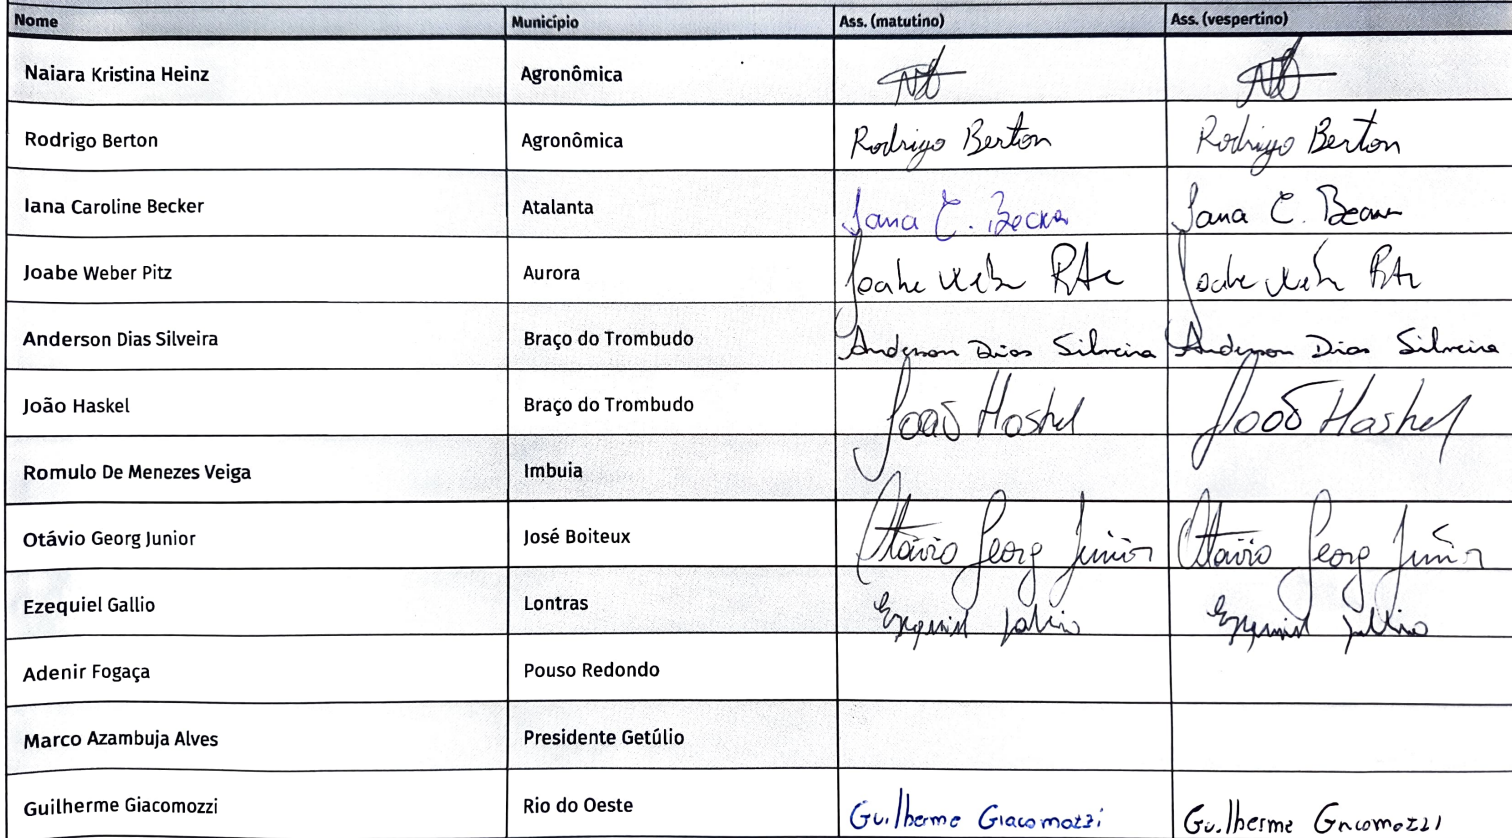 Nome Município Ass. (matutino) Ass. (vespertino)
Naiara Kristina Heinz Agronômica
Rodrigo Berton Agronômica Rodrigo Berton Rodrigo Berton
Iana Caroline Becker Atalanta Iana C. Becker Iana C. Becker
Joabe Weber Pitz Aurora Joabe
Anderson Dias Silveira Braço do Trombudo Anderson Dias Silveira Anderson Dias Silveira
João Haskel Braço do Trombudo João Haskel João Haskel
Romulo De Menezes Veiga Imbuia
Otávio Georg Junior José Boiteux Otávio Georg Junior Otávio Georg Junior
Ezequiel Gallio Lontras Ezequiel Gallio Ezequiel Gallio
Adenir Fogaça Pouso Redondo
Marco Azambuja Alves Presidente Getúlio
Guilherme Giacomozzi Rio do Oeste Guilherme Giacomozzi Guilherme Giacomozzi